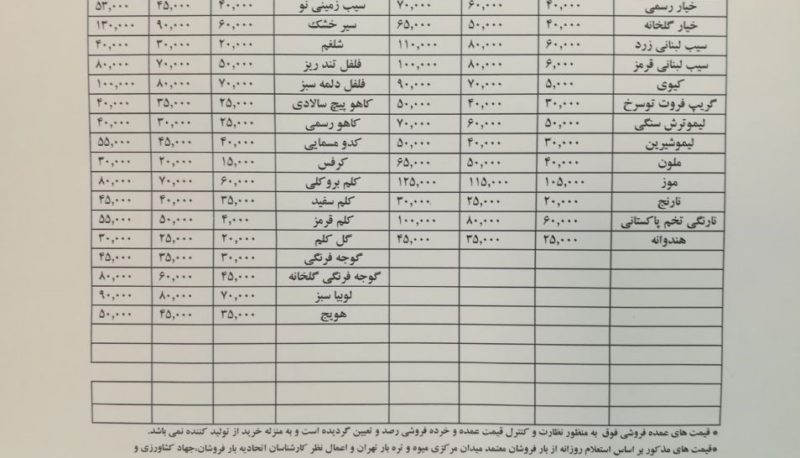 خیار رسمی ۴۰,۰۰۰ ۶۰,۰۰۰ ۷۰,۰۰۰ سیب زمینی نو ۴۰,۰۰۰ ۴۵,۰۰۰ ۵۳,۰۰۰
خیار گلخانه ۴۰,۰۰۰ ۵۰,۰۰۰ ۶۵,۰۰۰ سیر خشک ۶۰,۰۰۰ ۹۰,۰۰۰ ۱۳۰,۰۰۰
سیب لبنانی زرد ۶۰,۰۰۰ ۸۰,۰۰۰ ۱۱۰,۰۰۰ شلغم ۲۰,۰۰۰ ۳۰,۰۰۰ ۴۰,۰۰۰
سیب لبنانی قرمز ۶,۰۰۰ ۸۰,۰۰۰ ۱۰۰,۰۰۰ فلفل تند ریز ۵۰,۰۰۰ ۷۰,۰۰۰ ۸۰,۰۰۰
کیوی ۵,۰۰۰ ۷۰,۰۰۰ ۹۰,۰۰۰ فلفل دلمه سبز ۷۰,۰۰۰ ۸۰,۰۰۰ ۱۰۰,۰۰۰
گریپ فروت توسرخ ۳۰,۰۰۰ ۴۰,۰۰۰ ۵۰,۰۰۰ کاهو پیچ سالادی ۲۵,۰۰۰ ۳۵,۰۰۰ ۴۰,۰۰۰
لیموترش سنگی ۵۰,۰۰۰ ۶۰,۰۰۰ ۷۰,۰۰۰ کاهو رسمی ۲۵,۰۰۰ ۳۰,۰۰۰ ۴۰,۰۰۰
لیموشیرین ۳۰,۰۰۰ ۴۰,۰۰۰ ۵۰,۰۰۰ کدو مسمایی ۴۰,۰۰۰ ۴۵,۰۰۰ ۵۵,۰۰۰
ملون ۴۰,۰۰۰ ۵۰,۰۰۰ ۶۵,۰۰۰ کرفس ۱۵,۰۰۰ ۲۰,۰۰۰ ۳۰,۰۰۰
موز ۱۰۵,۰۰۰ ۱۱۵,۰۰۰ ۱۲۵,۰۰۰ کلم بروکلی ۶۰,۰۰۰ ۷۰,۰۰۰ ۸۰,۰۰۰
نارنج ۲۰,۰۰۰ ۲۵,۰۰۰ ۳۰,۰۰۰ کلم سفید ۳۵,۰۰۰ ۴۰,۰۰۰ ۴۵,۰۰۰
نارنگی تخم پاکستانی ۶۰,۰۰۰ ۸۰,۰۰۰ ۱۰۰,۰۰۰ کلم قرمز ۴,۰۰۰ ۵۰,۰۰۰ ۵۵,۰۰۰
هندوانه ۲۵,۰۰۰ ۳۵,۰۰۰ ۴۵,۰۰۰ گل کلم ۲۰,۰۰۰ ۲۵,۰۰۰ ۳۰,۰۰۰
گوجه فرنگی ۳۰,۰۰۰ ۳۵,۰۰۰ ۴۵,۰۰۰
گوجه فرنگی گلخانه ۴۵,۰۰۰ ۶۰,۰۰۰ ۸۰,۰۰۰
لوبیا سبز ۷۰,۰۰۰ ۸۰,۰۰۰ ۹۰,۰۰۰
هویج ۳۵,۰۰۰ ۴۵,۰۰۰ ۵۰,۰۰۰
* قیمت های عمده فروشی فوق به منظور نظارت و کنترل قیمت عمده و خرده فروشی رصد و تعیین گردیده است و به منزله خرید از تولید کننده نمی باشد.
*قیمت های مذکور بر اساس استعلام روزانه از بار فروشان معتمد میدان مرکزی میوه و تره بار تهران و اعمال نظر کارشناسان اتحادیه بار فروشان،جهاد کشاورزی و